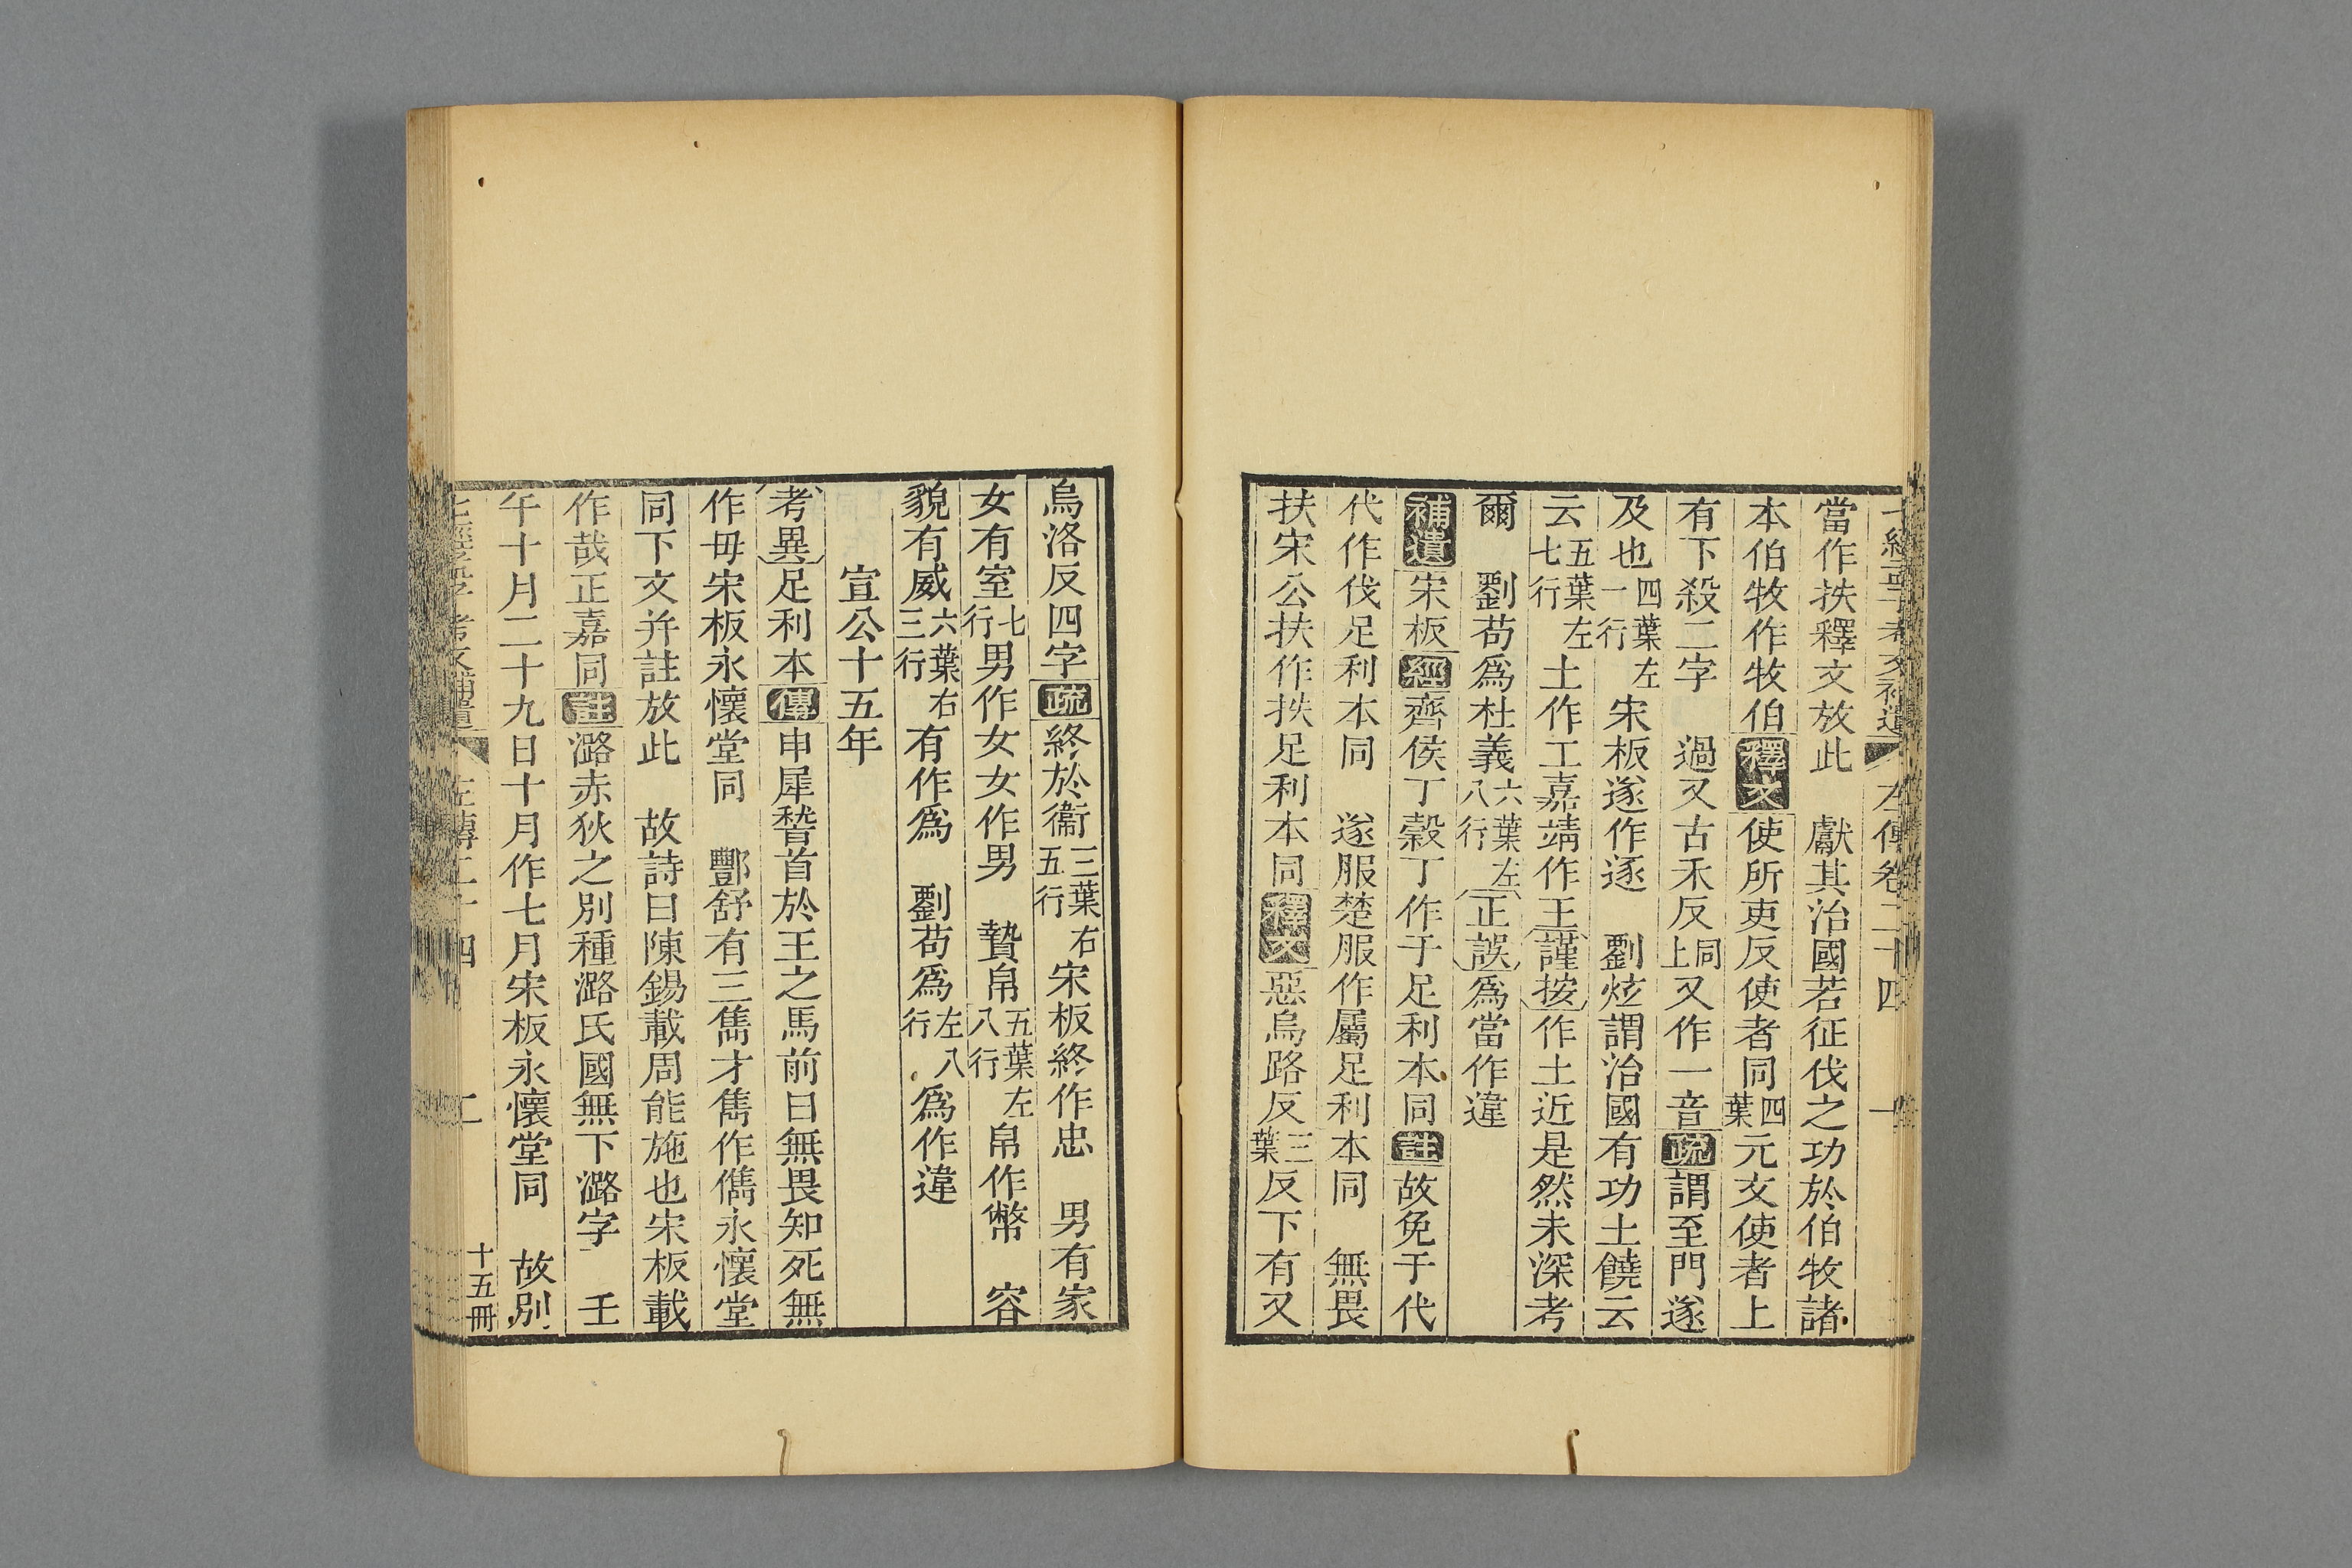 七經孟子考文補遺　左傳卷二十四　一
當作扶釋文放此　獻其治國若征伐之功於伯牧諸
本伯牧作牧伯釋文使所吏反使者同四葉元文使者上
有下殺二字　過又古禾反同上又作一音疏謂至門遂
及也四葉左一行宋板遂作逐　劉炫謂治國有功土饒云
云五葉左七行土作工嘉靖作王謹按作土近是然未深考
爾　劉苟爲杜義六葉左八行正誤爲當作違
補遺宋板經齊侯丁穀丁作于足利本同註故免于代
代作伐足利本同　遂服楚服作屬足利本同　無畏
扶宋公扶作抶足利本同釋文惡烏路反三葉反下有又
烏洛反四字疏終於衞三葉右五行宋板終作忠　男有家
女有室七行男作女女作男　贄帛五葉左八行帛作幣　容
貌有威六葉右三行有作爲　劉苟爲左八行爲作違
宣公十五年
考異足利本傳申犀稽首於王之馬前曰無畏知死無
作毋宋板永懷堂同　酆舒有三雋才雋作儁永懷堂
同下文幷註放此　故詩曰陳錫載周能施也宋板載
作哉正嘉同註潞赤狄之別種潞氏國無下潞字　壬
午十月二十九日十月作七月宋板永懷堂同　故別
七經孟子考文補遺　左傳二十四　二　十五冊